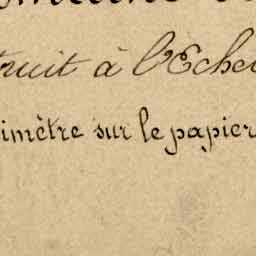 truit à l'Eche
imètre sur le papier